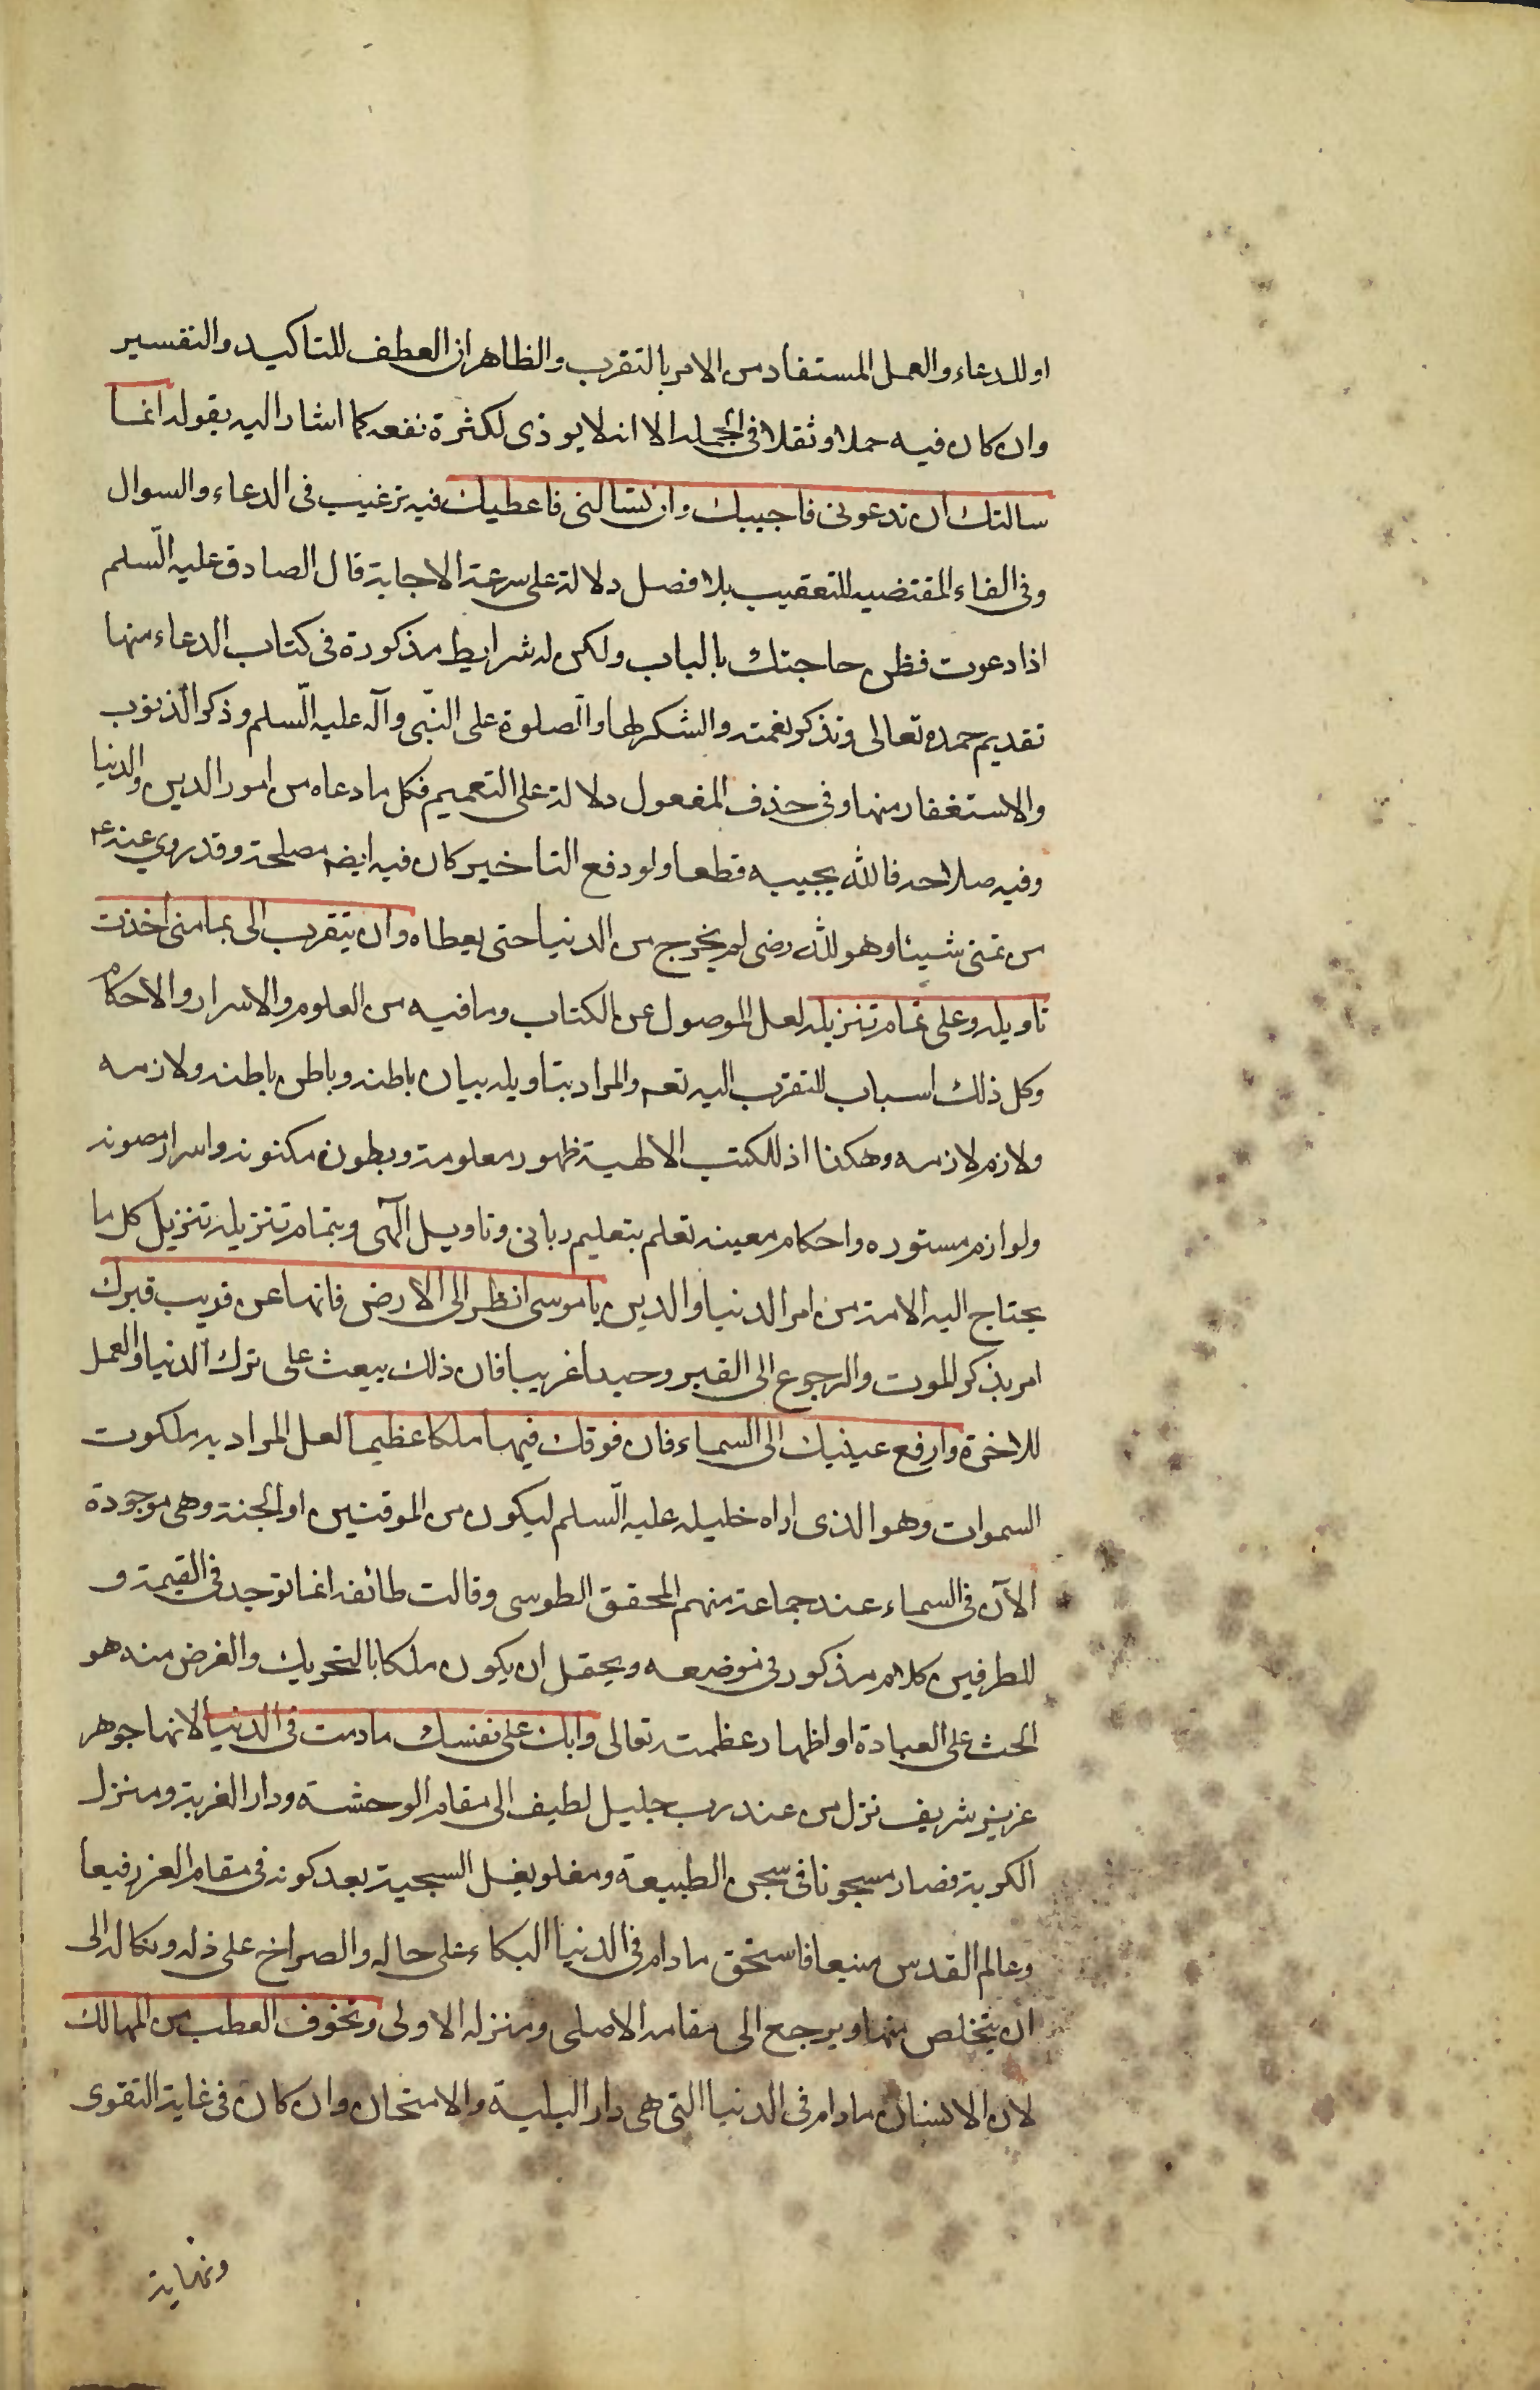 او للدعاء والعمل المستفاد من الامر بالتقرب والظاهر ان العطف للتاكيد والتفسير
وان كان فيه حملا وثقلا فى الجملة الا انه لا يوذى لكثرة نفعه كما اشار اليه بقوله انما
سالتك ان تدعونى فاجيبك وان تسالنى فاعطيك فيه ترغيب فى الدعاء والسوال
وفى الفاء المقتضيه للتعقيب بلا فصل دلالة على سرعة الاجابة قال الصادق عليه السّلم
اذا دعوت فظن حاجتك بالباب ولكن له شرايط مذكورة فى كتاب الدعاء منها
تقديم حمده تعالى وتذكر نعمته والشكر لها والصّلوة على النبّى وآله عليه السّلم وذكر الذنوب
والاستغفار منها وفى حذف المفعول دلالة على التعميم فكل ما دعاه من امور الدين والدنيا
وفيه صلاحه فالله يجيبه قطعا ولو دفع التاخير كان فيه ايضم مصلحة وقد روي عنه ع
من تمنى شيئا وهو لله رضى لم يخرج من الدنيا حتى يعطاه وان يتقرب الى بما منى اخذت
تاويله وعلى تمام تنزيله لعل الموصول عن الكتاب وما فيه من العلوم والاسرار والاحكام
وكل ذلك اسباب للتقرّب اليه تعم والمراد بتاويله بيان باطنه وباطن باطنه ولازمه
ولازم لازمه وهكذا اذ للكتب الالهية ظهور معلومة وبطون مكنونه واسرار مصونه
ولوازم مستوره واحكام معينه تعلم بتعليم ربانى وتاويل الٓهى وبتمام تنزيله تنزيل كل ما
يحتاج اليه الامة من امر الدنيا والدين يا موسى انظر الى الارض فانها عن قريب قبرك
امر بذكر الموت والرجوع الى القبر وحيدا غريبا فان ذلك يبعث على ترك الدنيا والعمل
للاخرة وارفع عينيك الى السماء فان فوقك فيها ملكا عظيما لعل المراد به ملكوت
السموات وهو الذى اراه خليله عليه السّلم ليكون من الموقنين او الجنة وهى موجودة
الآن فى السماء عند جماعة منهم المحقق الطوسى وقالت طائفه انما توجد فى القيمة و
للطرفين كلام مذكور فى موضعه ويحتمل ان يكون ملكا بالتحريك والغرض منه هو
الحث على العبادة او اظهار عظمته تعالى وابك على نفسك ما دمت فى الدنيا لانها جوهر
عزيز شريف نزل من عند رب جليل لطيف الى مقام الوحشة ودار الغربة ومنزل
الكربة فصار مسجونا فى سجن الطبيعة ومغلو بغل السجية بعد كونه فى مقام العز رفيعا
وعالم القدس منيعا فاستحق ما دام فى الدنيا البكاء على حاله والصراخ على ذله ونكاله الى
ان يتخلص منها ويرجع الى مقامه الاصلى ومنزله الاولى وتخوف العطب من المهالك
لان الانسان ما دام فى الدنيا التى هى دار البلية والامتحان وان كان فى غاية التقوى
ونهاية